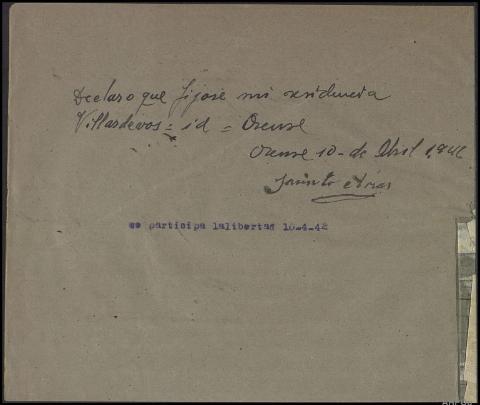 Declaro que fijaré mi residencia
Villardevos = id = Orense
Orense 10 - de Abril 1,942
Jacinto Arias
se participa lalibertad 10-4-42